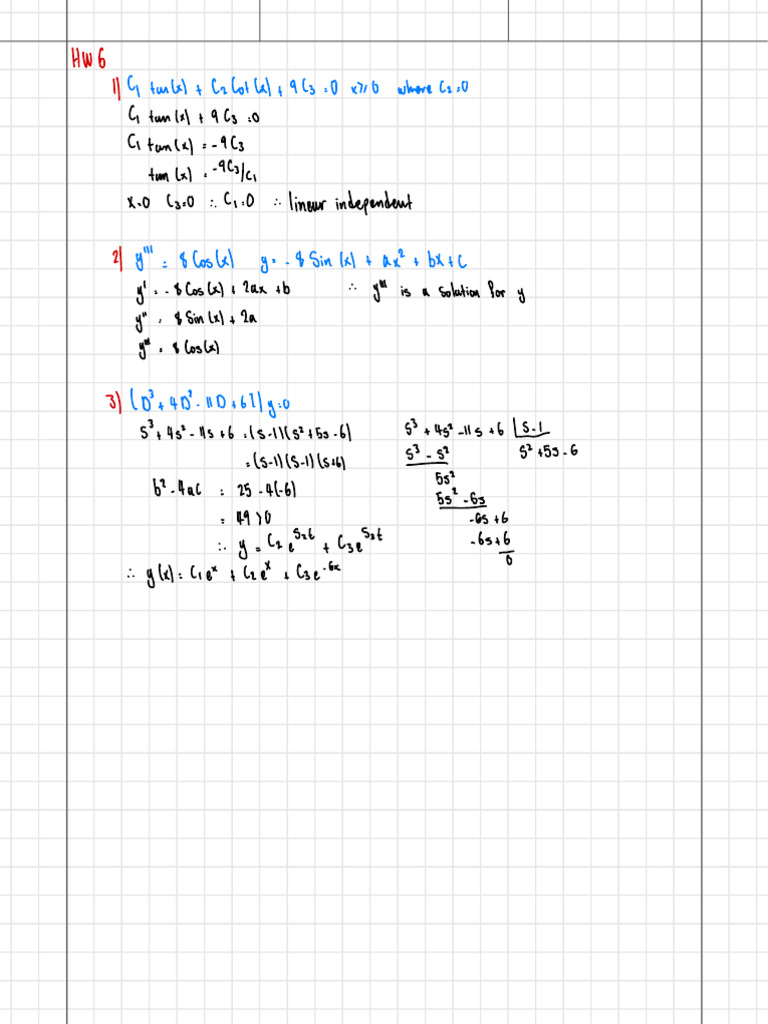 HW 6
1) C₁ tan(x) + C₂ Cot(x) + 9C₃ = 0 x≥0 where C₂=0
C₁ tan(x) + 9C₃ = 0
C₁ tan(x) = -9C₃
tan(x) = -9C₃/C₁
x=0 C₃=0 ∴ C₁=0 ∴ linear independent
2) y''' = 8 Cos(x) y = -8 Sin(x) + ax² + bx + c
y' = -8 Cos(x) + 2ax + b ∴ y''' is a solution for y
y'' = 8 Sin(x) + 2a
y''' = 8 Cos(x)
3) (D³ + 4D² - 11D + 6I) y=0
S³ + 4s² - 11s + 6 = (s-1)(s² + 5s - 6)
= (s-1)(s-1)(s+6)
b² - 4ac = 25 - 4(-6)
= 49 > 0
∴ y = C₂e^{S₂t} + C₃e^{S₃t}
∴ y(x) = C₁e^x + C₂e^x + C₃e^{-6x}
S³ + 4s² - 11s + 6 | S-1
S³ - s² S² + 5s - 6
5s²
5s² - 6s
-6s + 6
-6s + 6
0